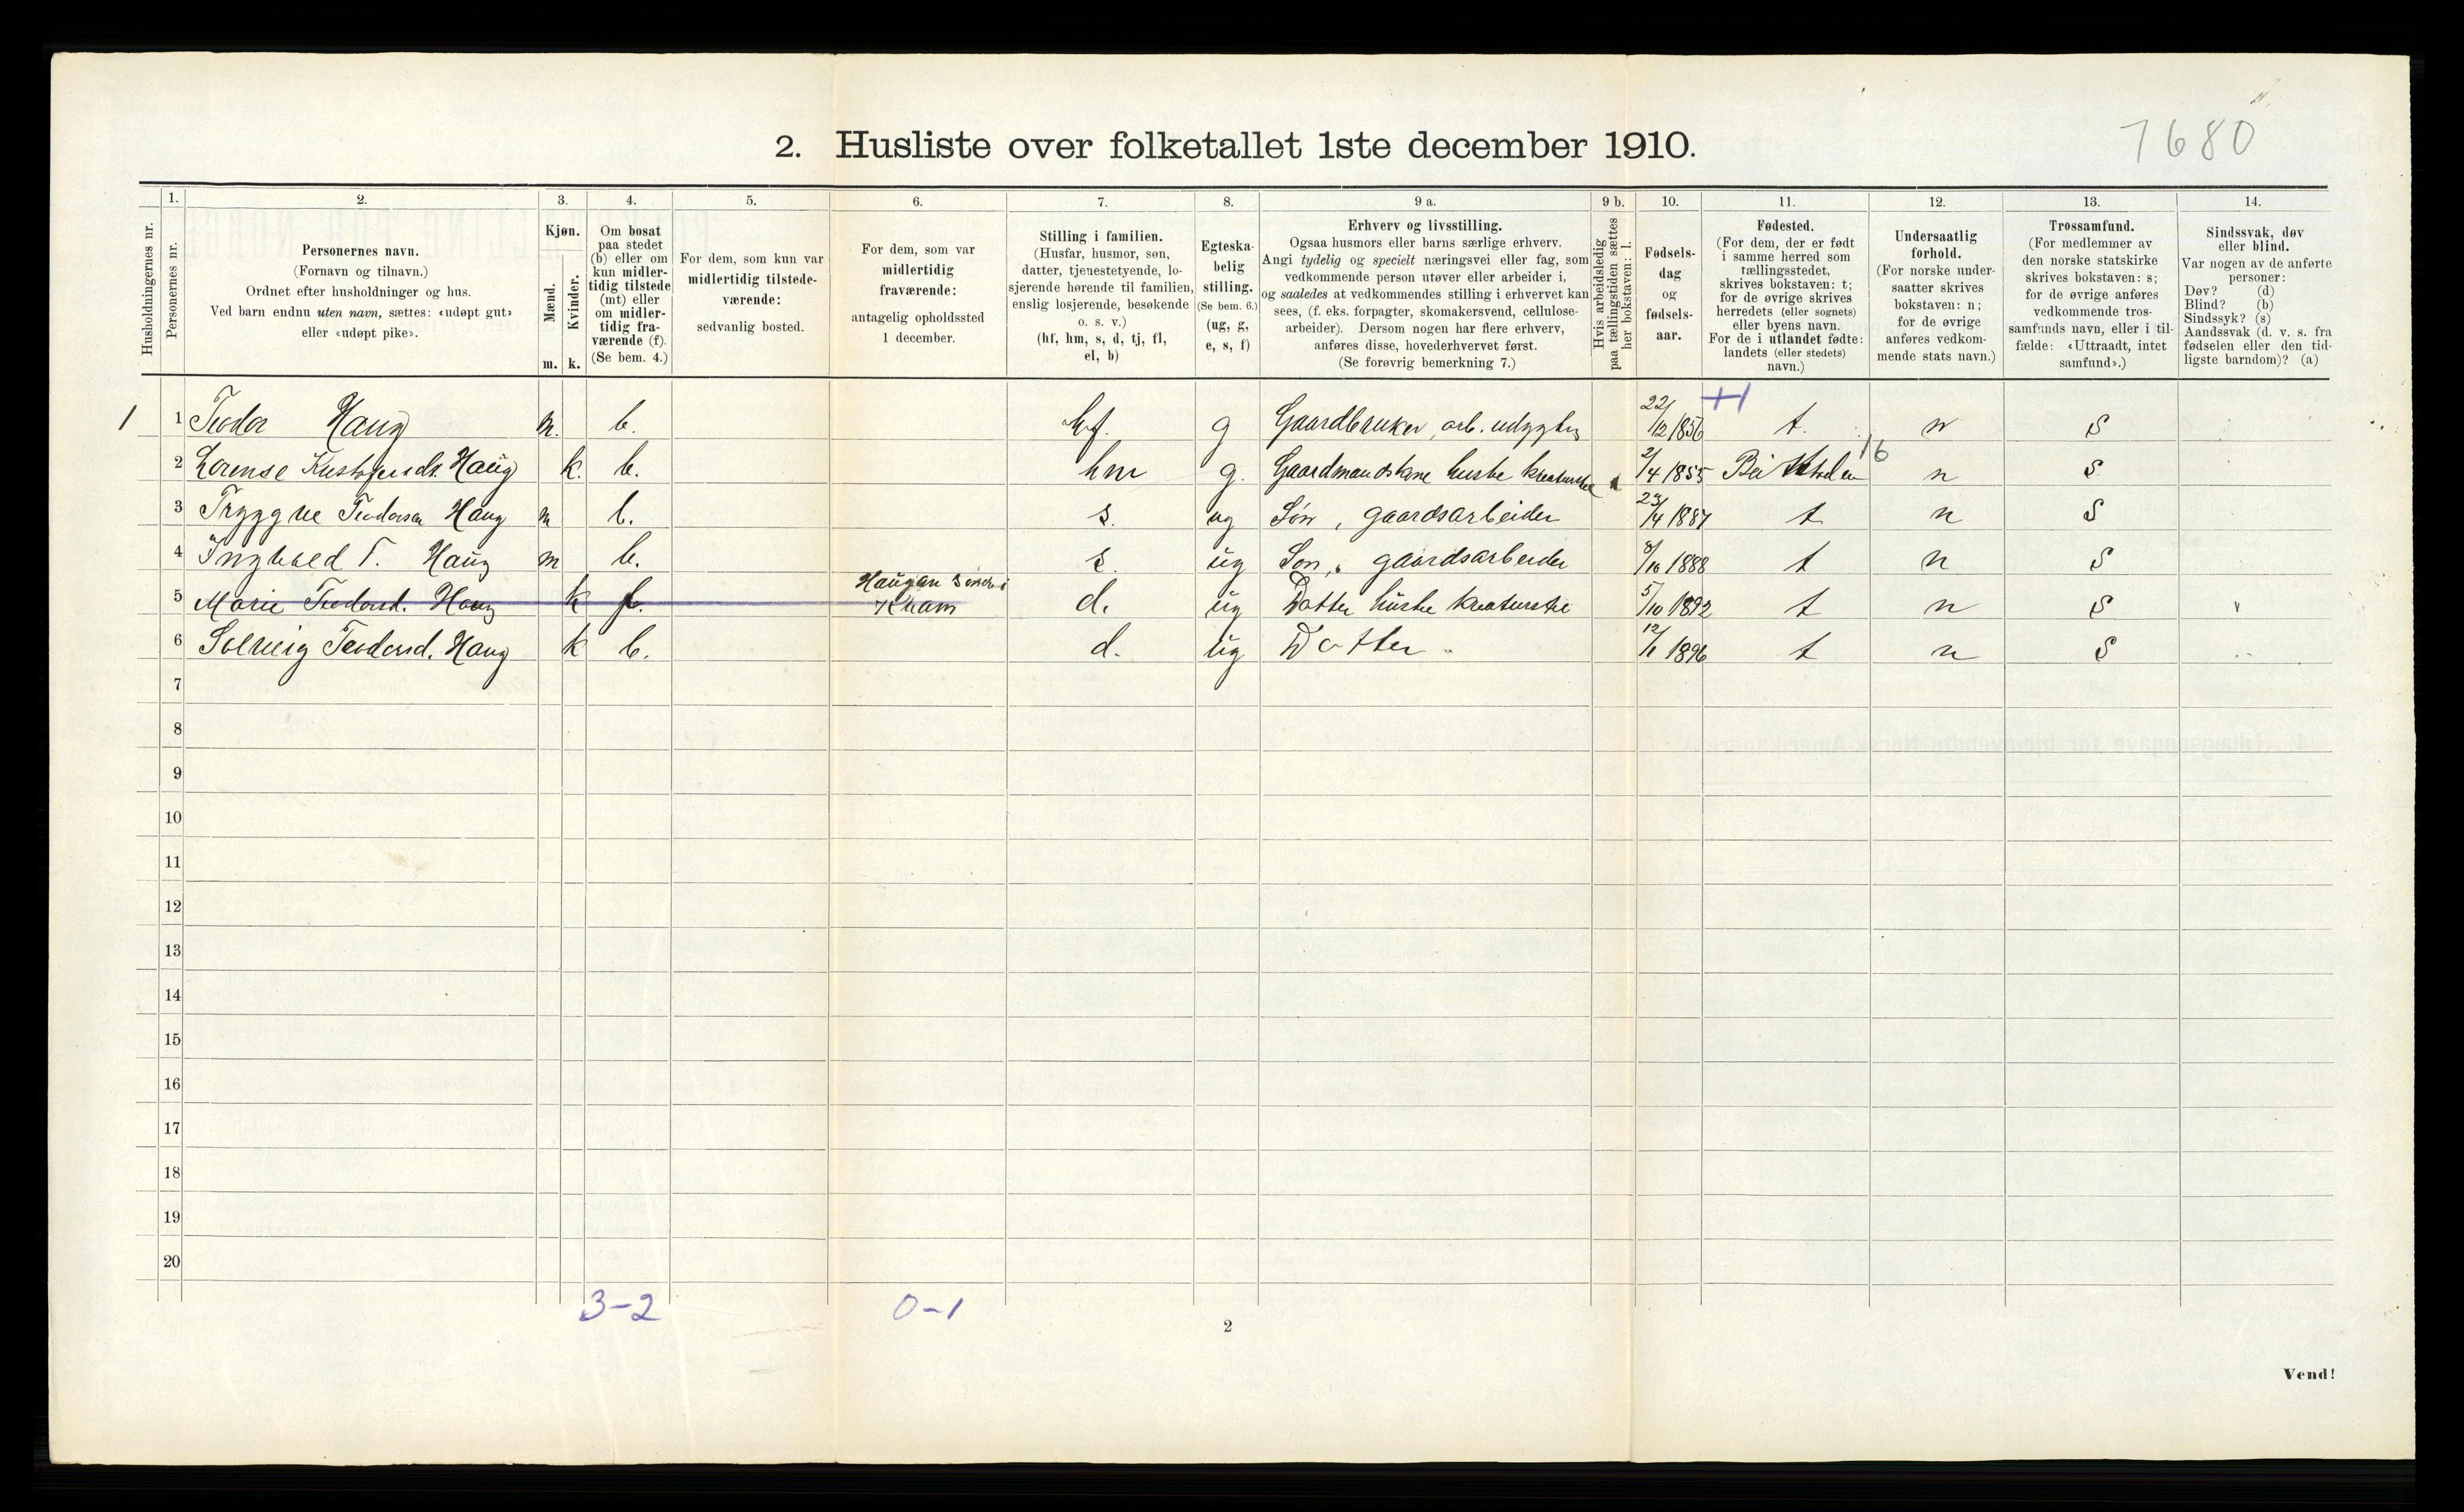 7680
2. Husliste over folketallet 1ste december 1910.
Husholdningernes nr.
1.
Personernes nr.
2.
Personernes navn.
(Fornavn og tilnavn.)
Ordnet efter husholdninger og hus.
Ved barn endnu uten navn, sættes: «udøpt gut»
eller «udøpt pike».
3.
Kjøn.
Mænd.
Kvinder.
m. k.
4.
Om bosat
paa stedet
(b) eller om
kun midler-
tidig tilstede
(mt) eller
om midler-
tidig fra-
værende (f).
(Se bem. 4.)
5.
For dem, som kun var
midlertidig tilstede-
værende:
sedvanlig bosted.
6.
For dem, som var
midlertidig
fraværende:
antagelig opholdssted
1 december.
7.
Stilling i familien.
(Husfar, husmor, søn,
datter, tjenestetyende, lo-
sjerende hørende til familien,
enslig losjerende, besøkende
o. s. v.)
(hf, hm, s, d, tj, fl,
el, b)
8.
Egteska-
belig
stilling.
(Se bem. 6.)
(ug, g,
e, s, f)
9 a.
Erhverv og livsstilling.
Ogsaa husmors eller barns særlige erhverv.
Angi tydelig og specielt næringsvei eller fag, som
vedkommende person utøver eller arbeider i,
og saaledes at vedkommendes stilling i erhvervet kan
sees, (f. eks. forpagter, skomakersvend, cellulose-
arbeider). Dersom nogen har flere erhverv,
anføres disse, hovederhvervet først.
(Se forøvrig bemerkning 7.)
9 b.
Hvis arbeidsledig
paa tællingstiden sættes
her bokstaven: l.
10.
Fødsels-
dag
og
fødsels-
aar.
11.
Fødested.
(For dem, der er født
i samme herred som
tællingsstedet,
skrives bokstaven: t;
for de øvrige skrives
herredets (eller sognets)
eller byens navn.
For de i utlandet fødte:
landets (eller stedets)
navn.)
12.
Undersaatlig
forhold.
(For norske under-
saatter skrives
bokstaven: n;
for de øvrige
anføres vedkom-
mende stats navn.)
13.
Trossamfund.
(For medlemmer av
den norske statskirke
skrives bokstaven: s;
for de øvrige anføres
vedkommende tros-
samfunds navn, eller i til-
fælde: «Uttraadt, intet
samfund».)
14.
Sindssvak, døv
eller blind.
Var nogen av de anførte
personer:
Døv? (d)
Blind? (b)
Sindssyk? (s)
Aandssvak (d. v. s. fra
fødselen eller den tid-
ligste barndom)? (a)
1 1 Teodor Haug m. b. hf. g Gaardbruker, arb. 22/12 1856 t. n S
2 Lorense Haug k. b. hm g. Gaardmandskone 2/4 1855 16 n S
3 Tryggve Teodorsen Haug m b. s. ug Søn, gaardsarbeider 23/4 1887 t n S
4 T. Haug m b. s. ug Søn, gaardsarbeider 8/10 1888 t n S
Haugan
5 Marie Teodorsd. Haug k f. Kvam d. ug Datter 5/10 1892 t n S
6 Solveig Teodorsd. Haug k b. d. ug Datter 12/1 1896 t n S
7
8
9
10
11
12
13
14
15
16
17
18
19
20
3-2 0-1
2
Vend!